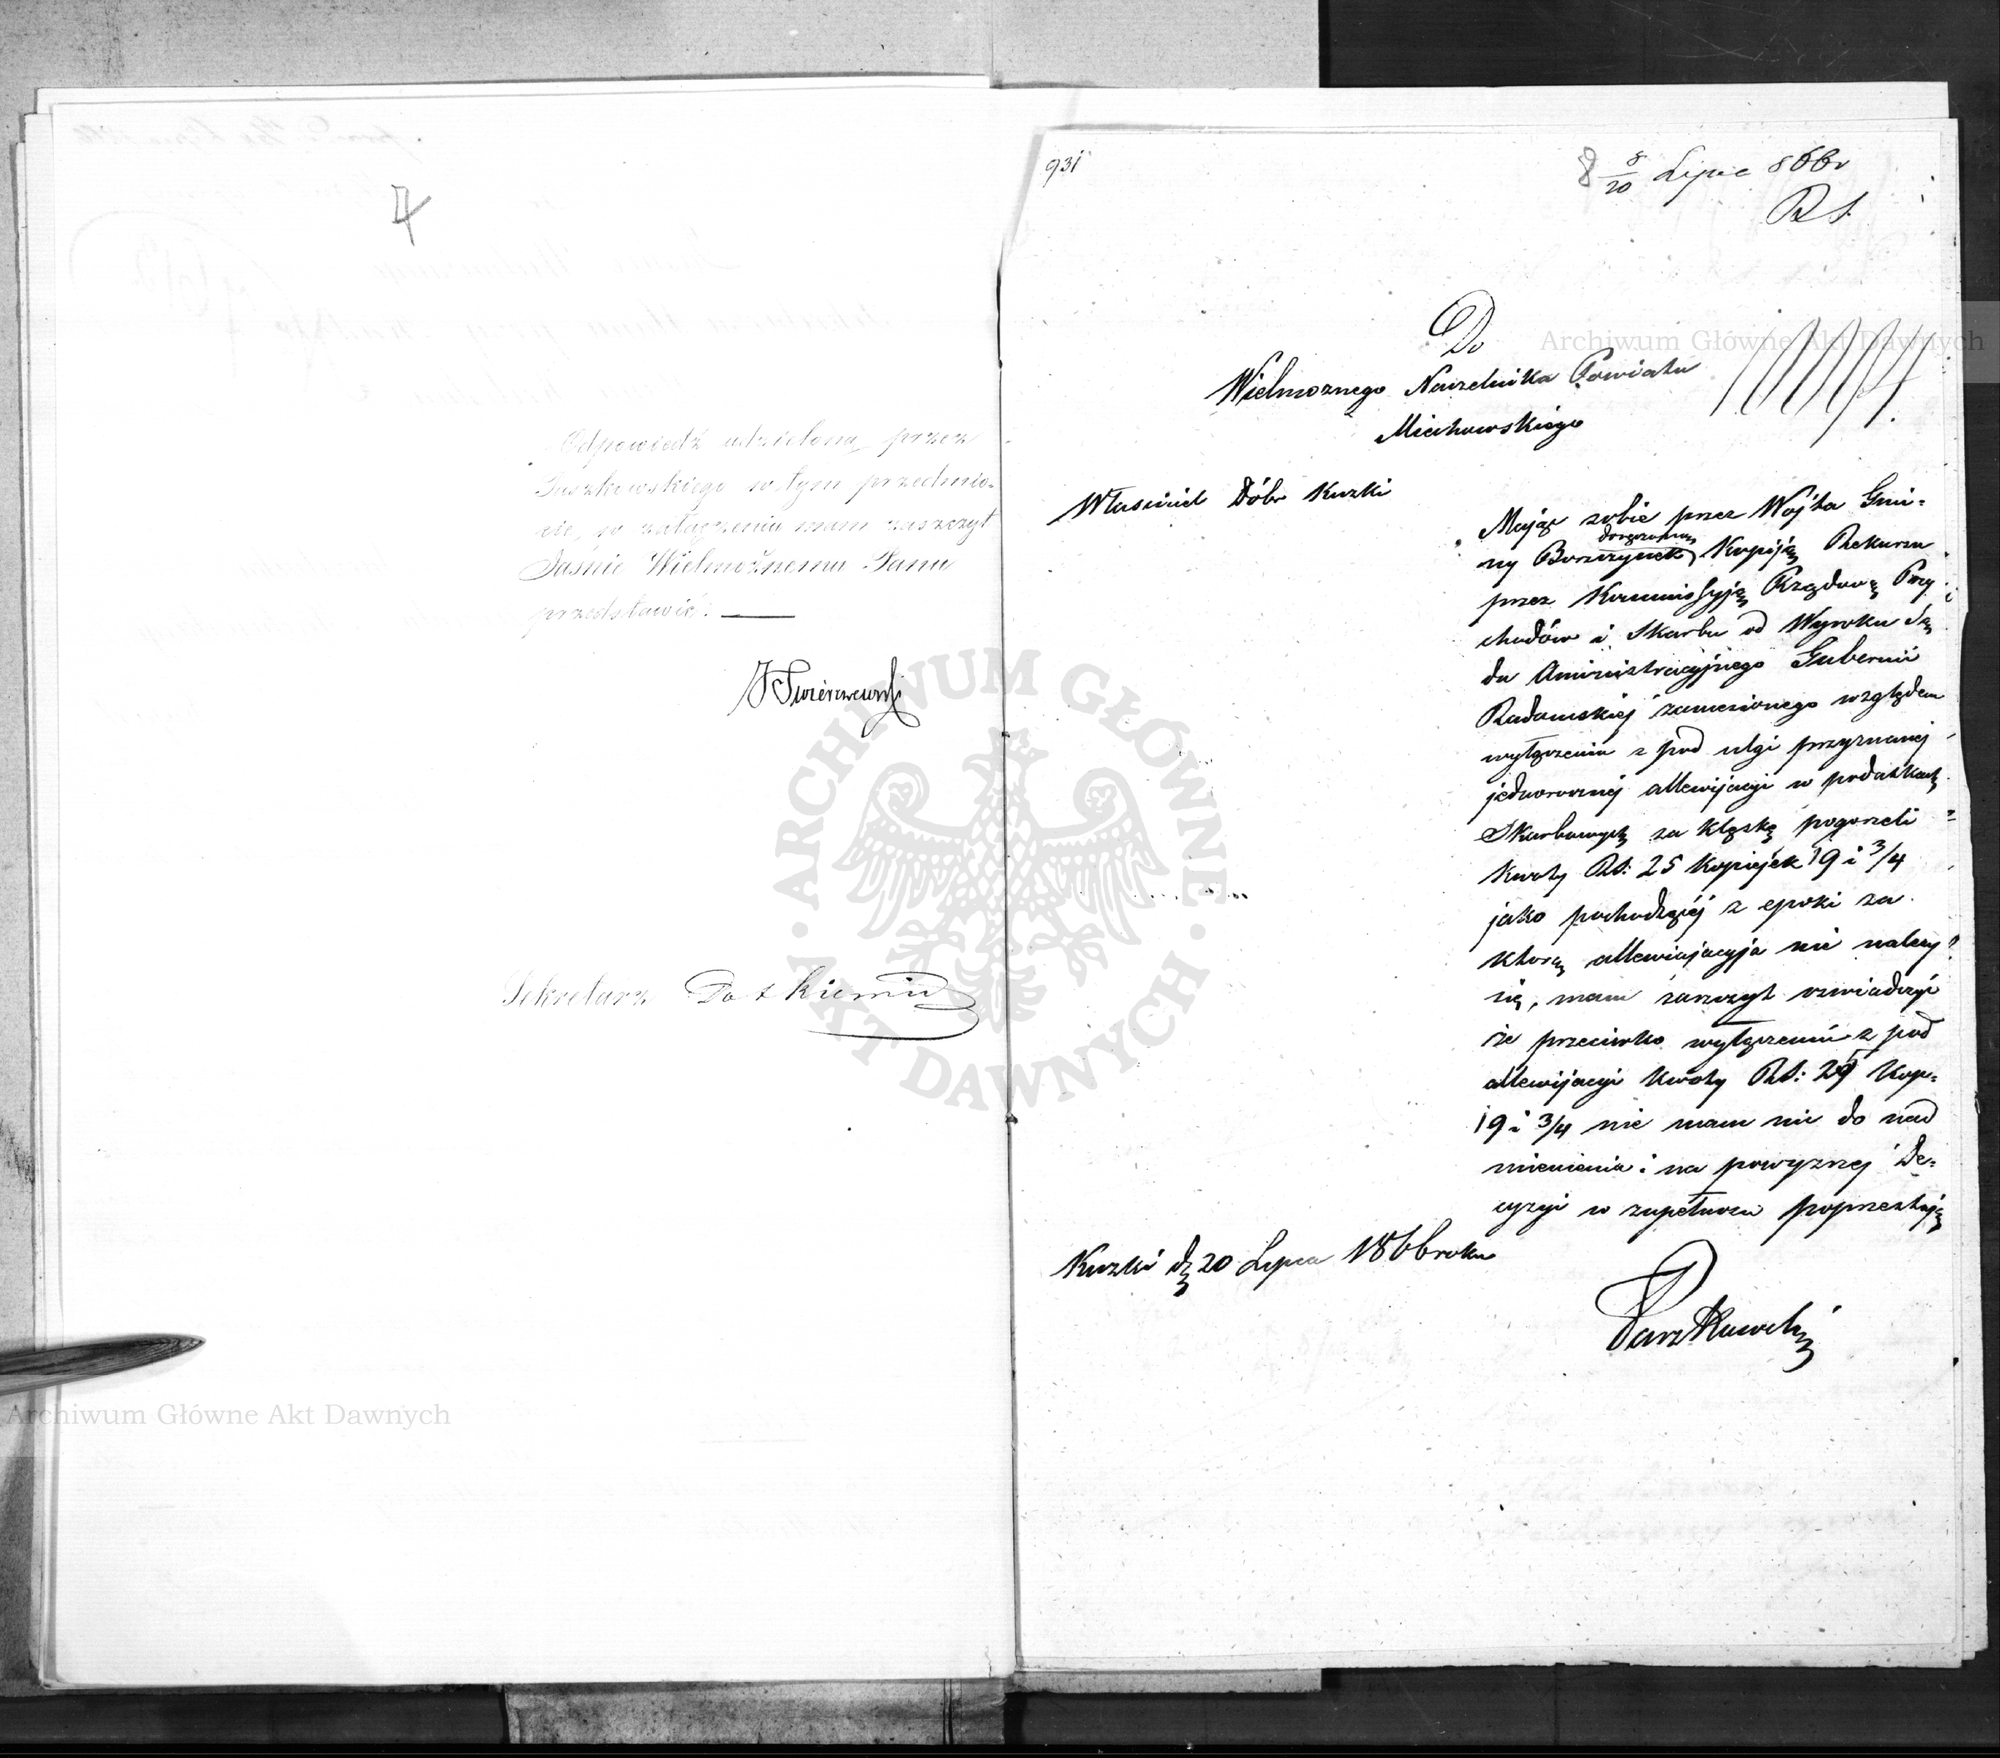 4
Odpowiedź udzieloną przez
Paszkowskiego w tym przedmio-
cie, w załączeniu mam zaszczyt
Jaśnie Wielmożnemu Panu
przedstawić.
Sekretarz
931
8/20 Lipca 866 r
Do
Wielmożnego Naczelnika Powiatu
Miechowskiego
Właściciel Dóbr Kuzki
Mając sobie przez Wójta Gmi-
doręczoną
ny Boszczynek Kopiją Rekursu
przez Kommissyją Rządową Przy
chodów i Skarbu od Wyroku Są
du Aministracyjnego Gubernii
Radomskiej zaniesionego względem
wyłączenia z pod ulgi przyznanej
jednorocznej allewijacyi w podatkach
Skarbowych za klęskę pogorzeli
kwoty RS: 25 kopiejek 19 i 3/4
jako pochodzącej z epoki za
którą allewiajacyja nie należy
się, mam zaszczyt oświadczyć
że przeciwko wyłączeniu z pod
allewijacyi kwoty RS: 25 kop-
19 i 3/4 nie mam nic do nad
mienienia i na powyzszej De-
cyzyi w zupełności poprzestaję
Kuzki d 20 Lipca 1866 roku
Paszkowski
Archiwum Główne Akt Dawnych
Archiwum Główne Akt Dawnych
ARCHIWUM GŁÓWNE AKT DAWNYCH